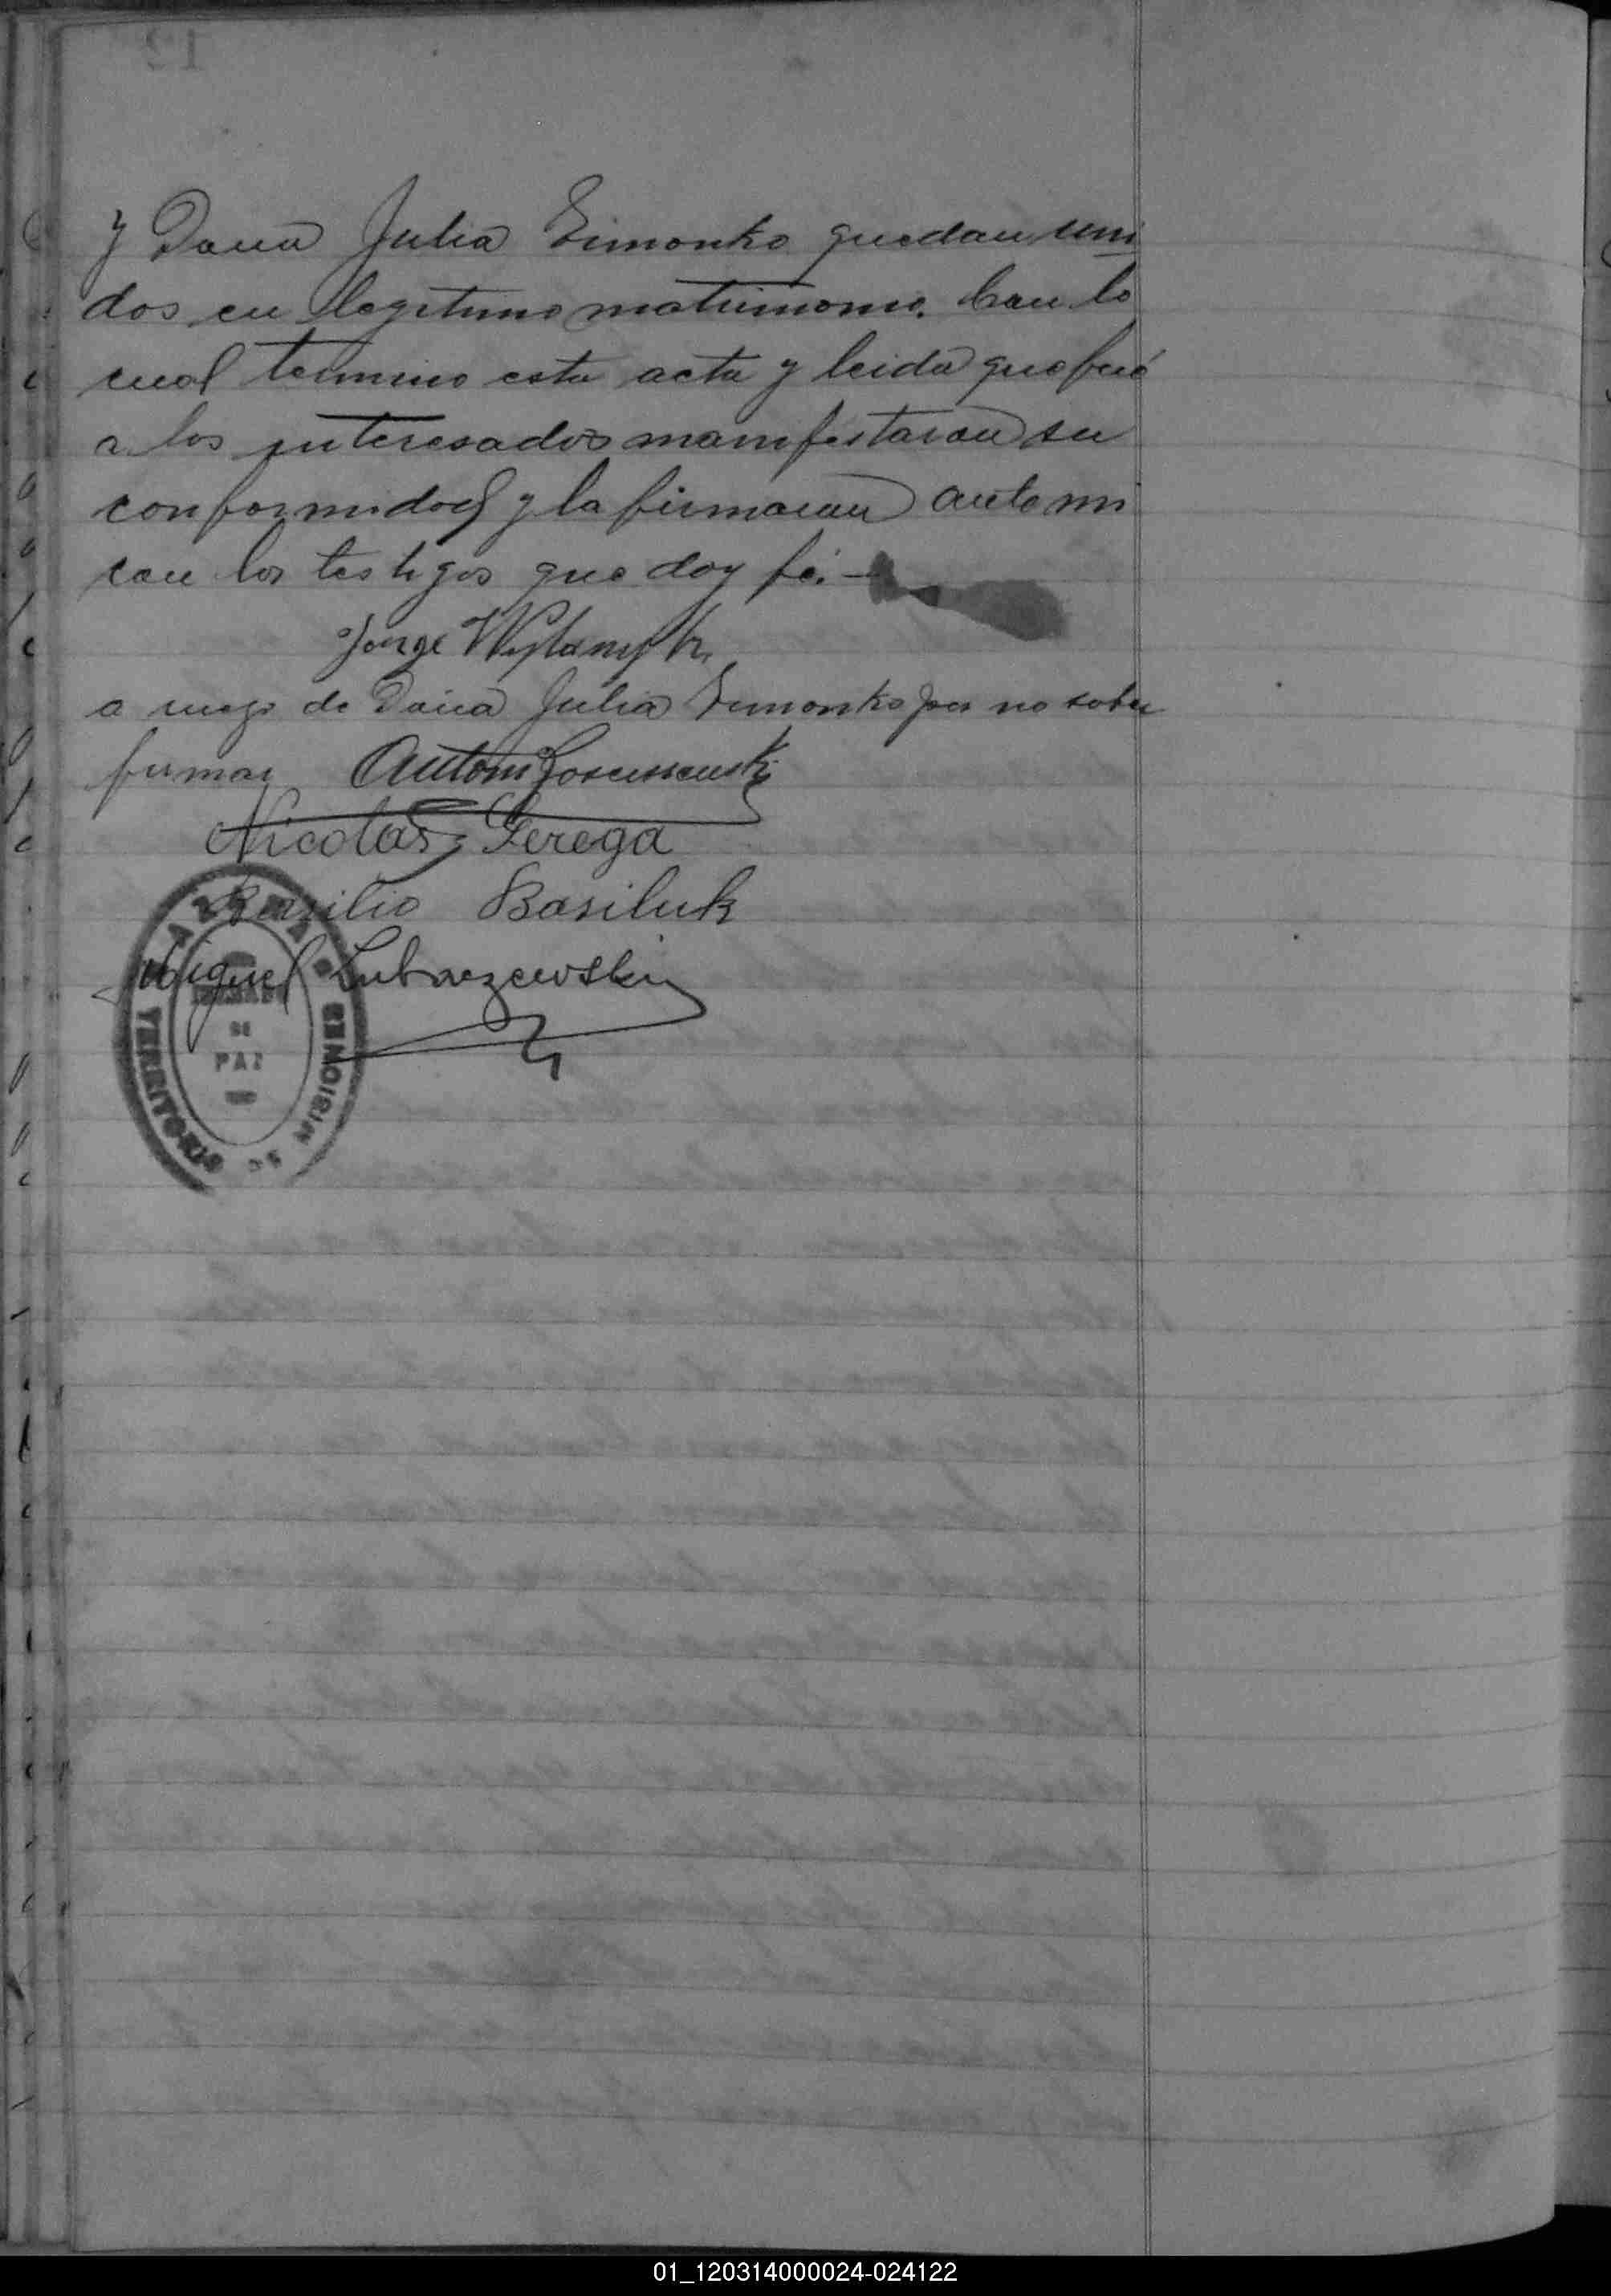 y Dona Julia Simonko quedan uni
dos en legitimo matrimonio. Con lo
cual termino esta acta y leida que fué
a los interesados manifestaron su
conformidad y la firmaron ante mi
con los testigos que doy fé. —
Jorge
a ruego de Dona Julia Simonko por no saber
firmar Antoni
Nicolas Gerega
Basilio Basiluk
Miguel
AZARA
JUZGADO
DE
PAZ
TERRITORIO DE MISIONES
01_120314000024-024122